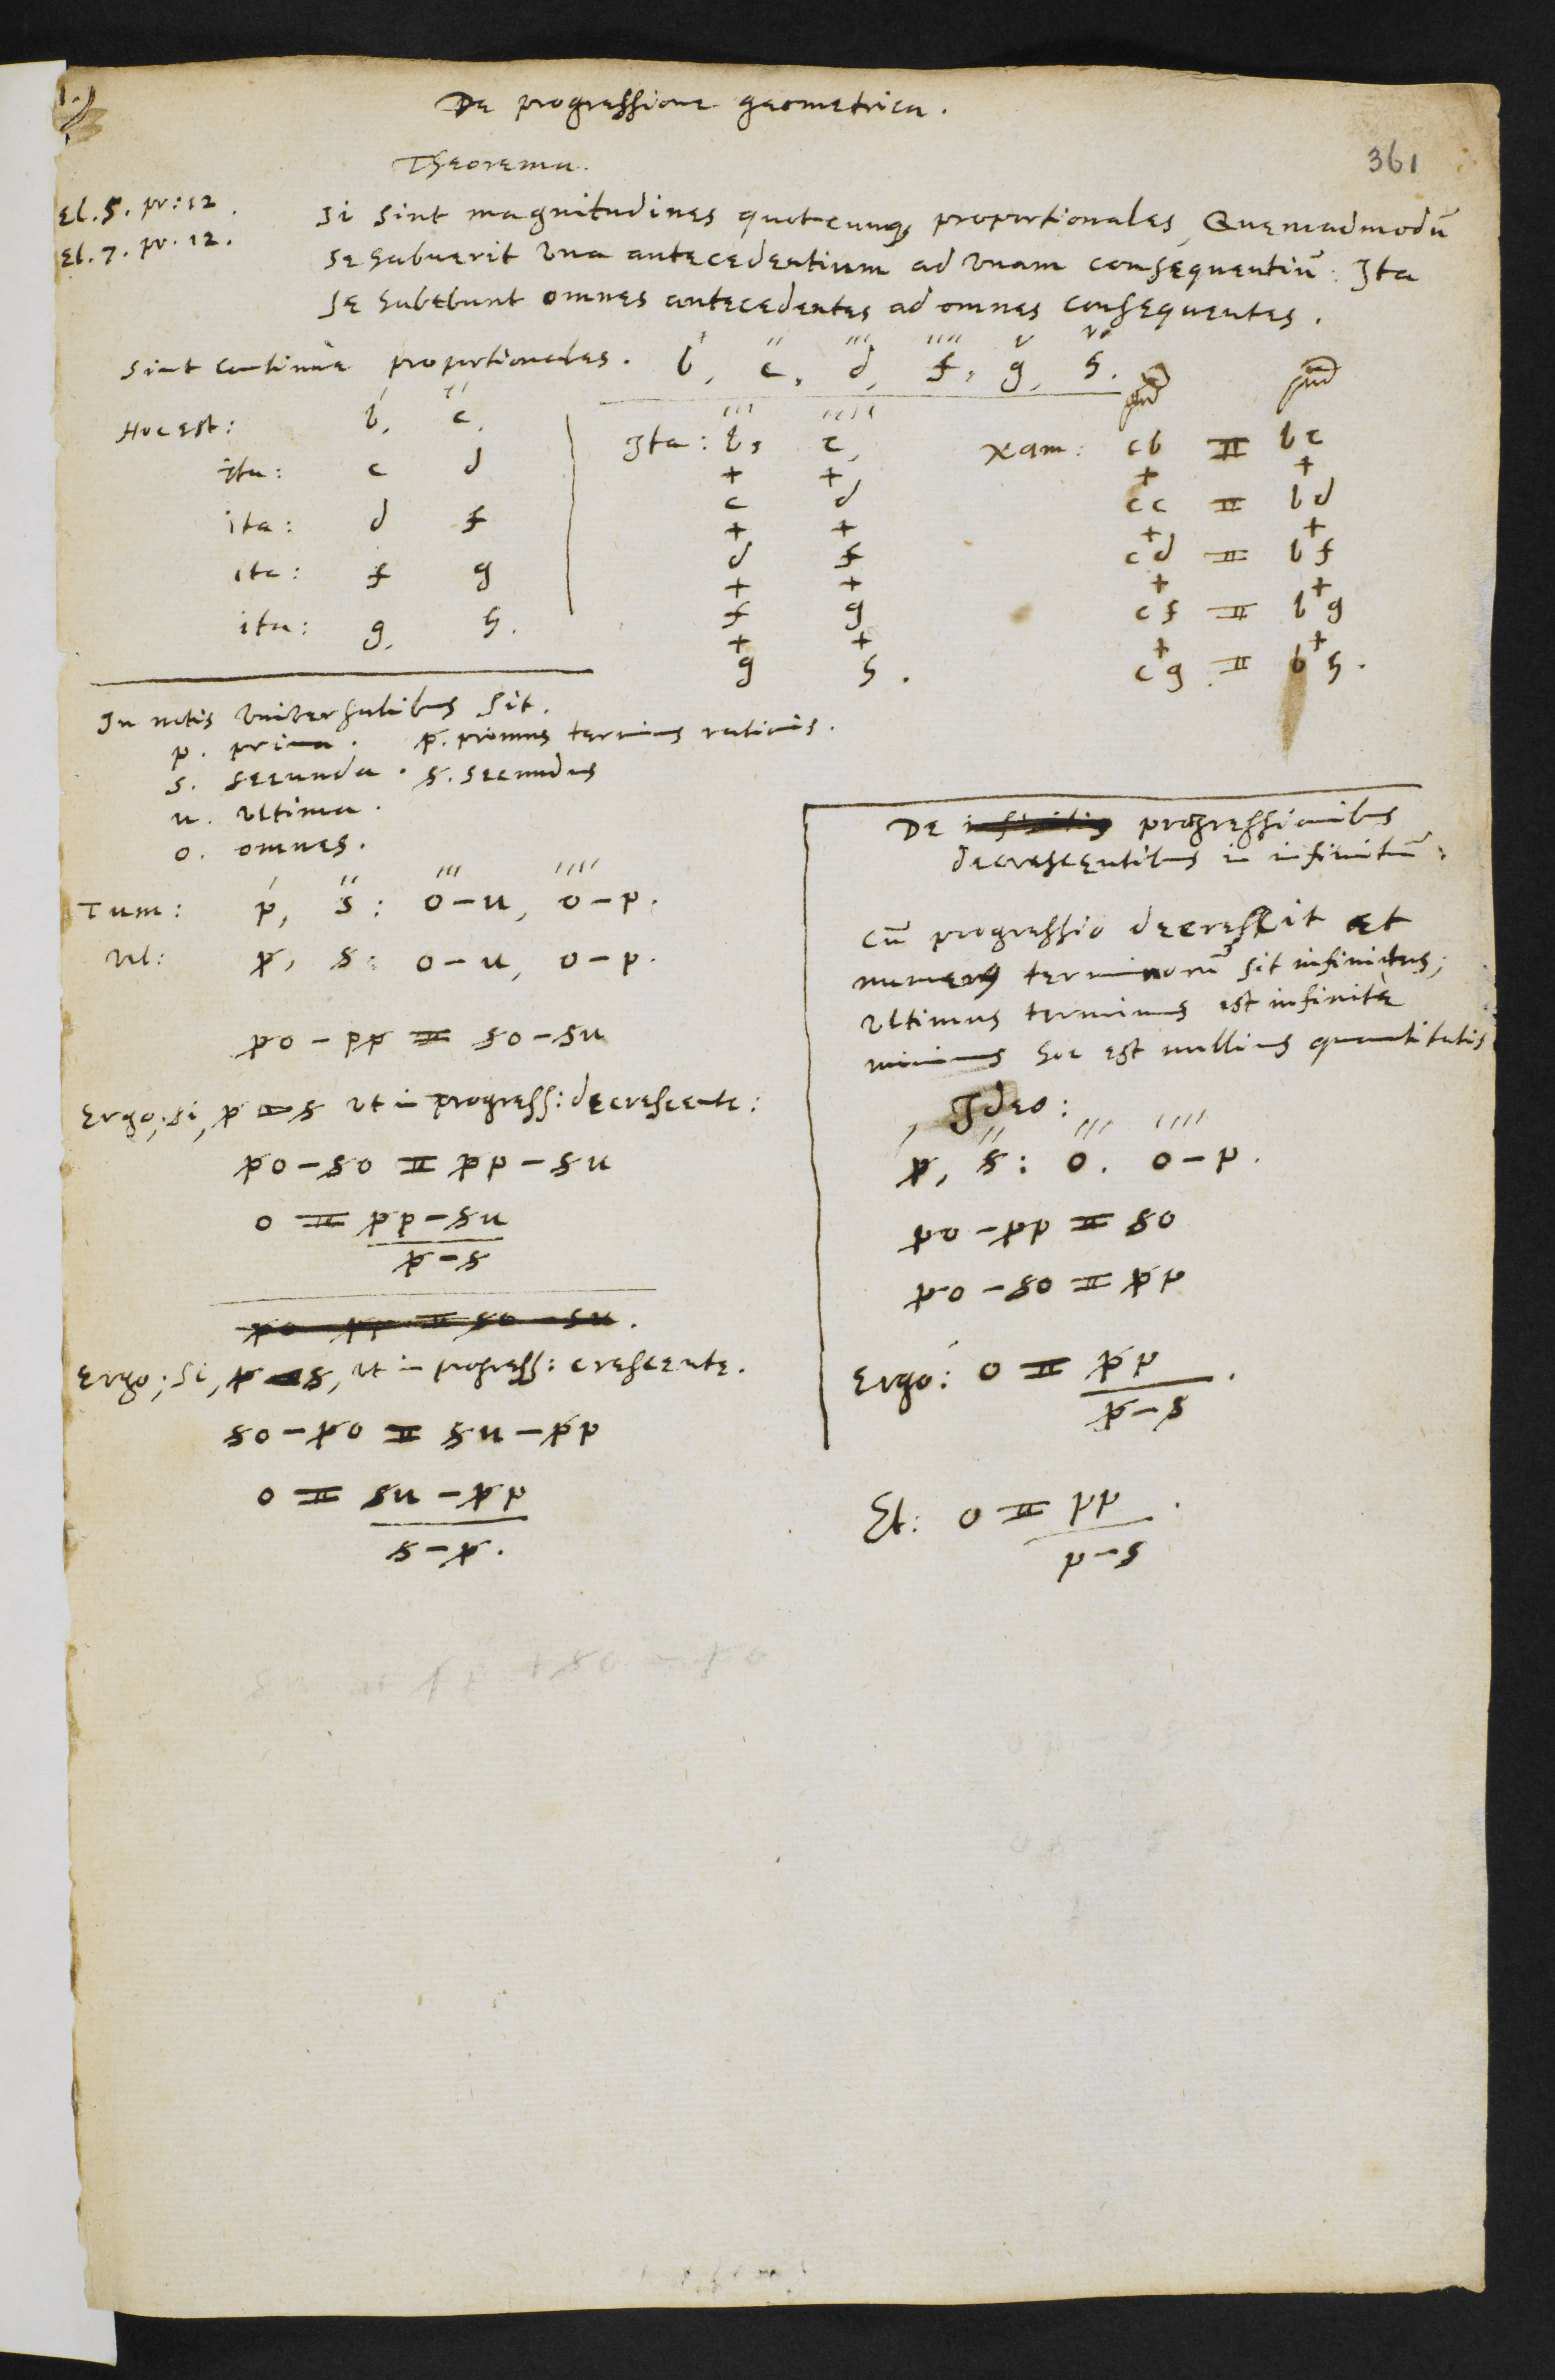 1.)
De progressione geometrica.
361
Theorema.
El. 5. pr: 12.
El. 7. pr. 12.
Si sint magnitudines quotcunq, proportionales, Quemadmodū
se habuerit una antecedentium ad unam consequentiū: Ita
se habebunt omnes antecedentes ad omnes consequentes.
Sint continuè proportionales. b, c, d, f, g, h.
Hoc est: b, c,
ita: c d
ita: d f
ita: f g
ita: g, h.
Ita: b, c,
+ +
c d
+ +
d f
+ +
f g
+ +
g h.
Nam: cb = bc
+ +
cc = bd
+ +
cd = bf
+ +
cf = bg
+ +
cg = bh.
In notis universalibus sit.
p. prima. p. primus terminus rationis.
s. secunda. s. secundus
u. ultima.
o. omnes.
Tum: p, s: o-u, o-p.
Vel: p, s: o-u, o-p.
po - pp = so - su
Ergo; si, p > s ut in progress: decrescente:
po - so = pp - su
o = pp - su
p - s
po - pp = so - su.
Ergo; si, p < s, ut in progress: crescente.
so - po = su - pp
o = su - pp
s - p.
De progressionibus
decrescentibus in infinitū:
Cū progressio decrescit et
numerus terminorū sit infinitus;
ultimus terminus est infinitè
minimus hoc est nullius quantitatis
Ideo:
p, s: o. o - p.
po - pp = so
po - so = pp
Ergo: o = pp.
p - s
Et: o = pp.
p - s